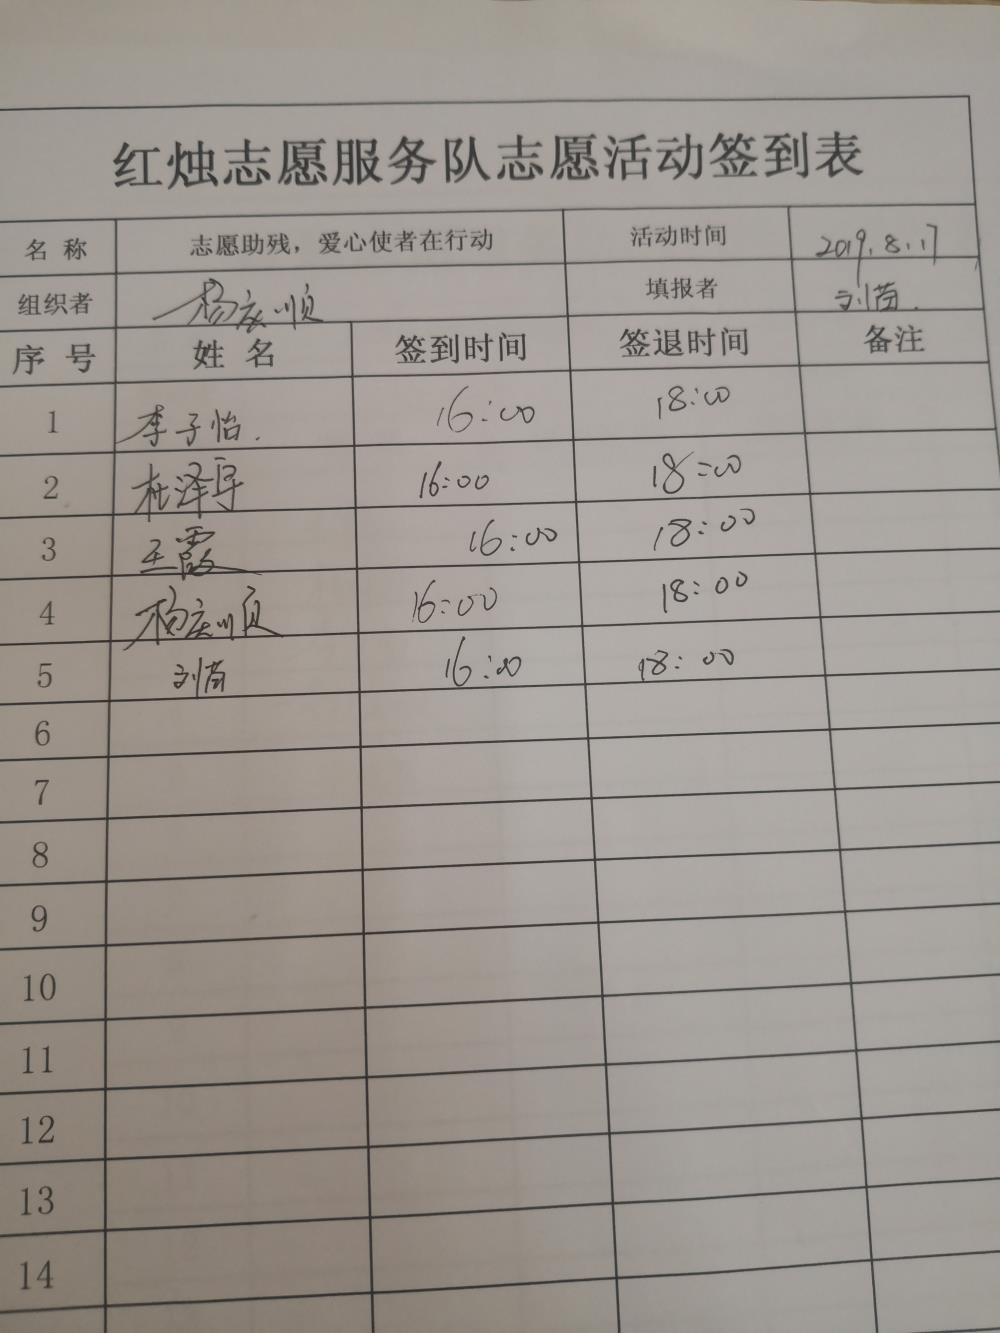 红烛志愿服务队志愿活动签到表
名 称 志愿助残，爱心使者在行动 活动时间 2019.8.17
组织者 杨庆顺 填报者 刘苗.
序 号 姓 名 签到时间 签退时间 备注
1 李子怡. 16:00 18:00
2 杜泽导 16:00 18:00
3 王霞 16:00 18:00
4 杨庆顺 16:00 18:00
5 刘苗 16:00 18:00
6
7
8
9
10
11
12
13
14